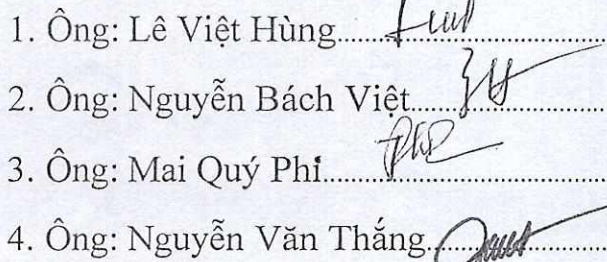 1. Ông: Lê Việt Hùng
2. Ông: Nguyễn Bách Việt
3. Ông: Mai Quý Phi
4. Ông: Nguyễn Văn Thắng